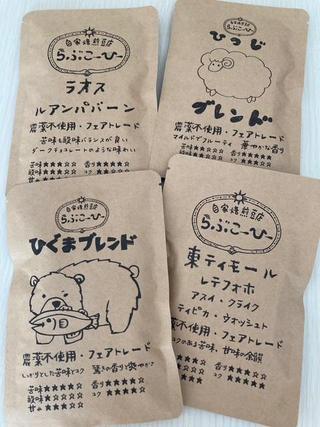 自家焙煎豆店
らぶこーひー
ラオス
ルアンパバーン
農薬不使用・フェアトレード
苦味も酸味バランスが良い
ダークチョコレートのような味わい
苦味★★★☆☆ 香り★★★★☆
ひつじ
ブレンド
農薬不使用・フェアトレード
マイルドでフルーティ 華やかな香り
苦味★★☆☆☆ 香り★★★★★
自家焙煎豆店
らぶこーひー
ひぐまブレンド
農薬不使用・フェアトレード
しっかりとした苦味とコク 驚きの香りと爽やかさ
苦味★★★★☆ 香り★★★★☆
酸味★☆☆☆☆ コク★★★★☆
甘み★★★☆☆
自家焙煎豆店
らぶこーひー
東ティモール
レテフォホ
アスイ・クライク
ティピカ・ウォッシュト
農薬不使用・フェアトレード
コクのある苦味、甘味の余韻
香り★★★★☆
コク★★★★★